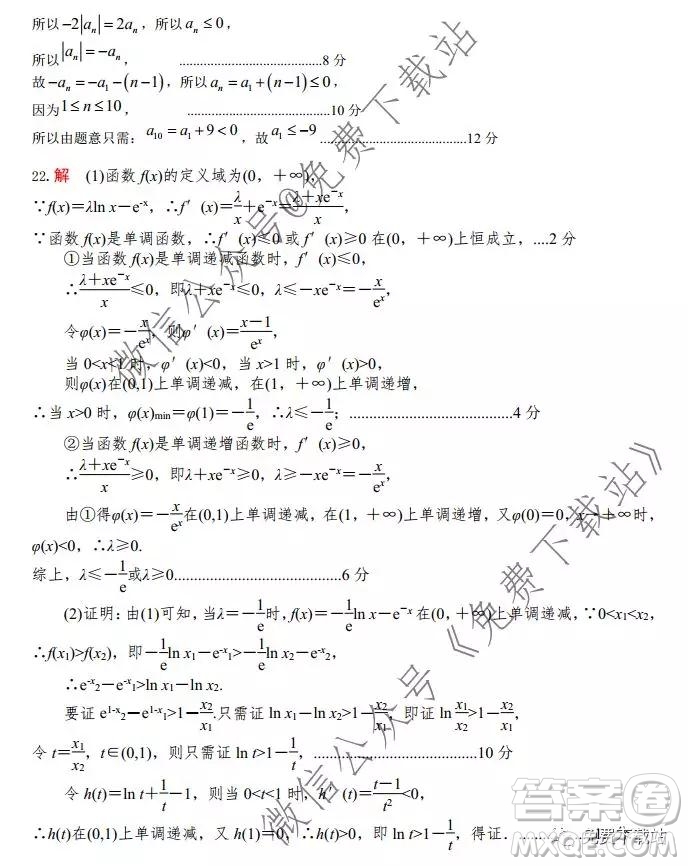 所以-2|aₙ|=2aₙ，所以aₙ≤0，
所以|aₙ|=-aₙ，.................................................8 分
故-aₙ=-a₁-(n-1)，所以aₙ=a₁+(n-1)≤0，
因为1≤n≤10，.................................................10 分
所以由题意只需：a₁₀=a₁+9<0，故a₁≤-9 .................................................12 分
22. 解 (1)函数 f(x)的定义域为(0，+∞)，
∵f(x)=λln x-e⁻ˣ，∴f′(x)=λ/x+e⁻ˣ=(λ+xe⁻ˣ)/x，
∵函数 f(x)是单调函数，∴f′(x)≤0 或 f′(x)≥0 在(0，+∞)上恒成立，....2 分
①当函数 f(x)是单调递减函数时，f′(x)≤0，
∴(λ+xe⁻ˣ)/x≤0，即λ+xe⁻ˣ≤0，λ≤-xe⁻ˣ=-x/eˣ，
令φ(x)=-x/eˣ，则φ′(x)=(x-1)/eˣ，
当 0<x<1 时，φ′(x)<0，当 x>1 时，φ′(x)>0，
则φ(x)在(0,1)上单调递减，在(1，+∞)上单调递增，
∴当 x>0 时，φ(x)min=φ(1)=-1/e，∴λ≤-1/e；.................................................4 分
②当函数 f(x)是单调递增函数时，f′(x)≥0，
∴(λ+xe⁻ˣ)/x≥0，即λ+xe⁻ˣ≥0，λ≥-xe⁻ˣ=-x/eˣ，
由①得φ(x)=-x/eˣ在(0,1)上单调递减，在(1，+∞)上单调递增，又φ(0)=0，x→+∞时，
φ(x)<0，∴λ≥0.
综上，λ≤-1/e或λ≥0.................................................6 分
(2)证明：由(1)可知，当λ=-1/e时，f(x)=-1/e ln x-e⁻ˣ 在(0，+∞)上单调递减，∵0<x₁<x₂，
∴f(x₁)>f(x₂)，即-1/e ln x₁-e^-x₁>-1/e ln x₂-e^-x₂，
∴e^-x₂-e^-x₁>ln x₁-ln x₂.
要证 e^1-x₂-e^1-x₁>1-x₂/x₁.只需证 ln x₁-ln x₂>1-x₂/x₁，即证 ln x₁/x₂>1-x₂/x₁，
令 t=x₁/x₂，t∈(0,1)，则只需证 ln t>1-1/t，.................................................10 分
令 h(t)=ln t+1/t-1，则当 0<t<1 时，h′(t)=(t-1)/t²<0，
∴h(t)在(0,1)上单调递减，又 h(1)=0，∴h(t)>0，即 ln t>1-1/t，得证. ........
微信公众号@免费下载站
微信公众号《免费下载站》
答案圈
免费下载站